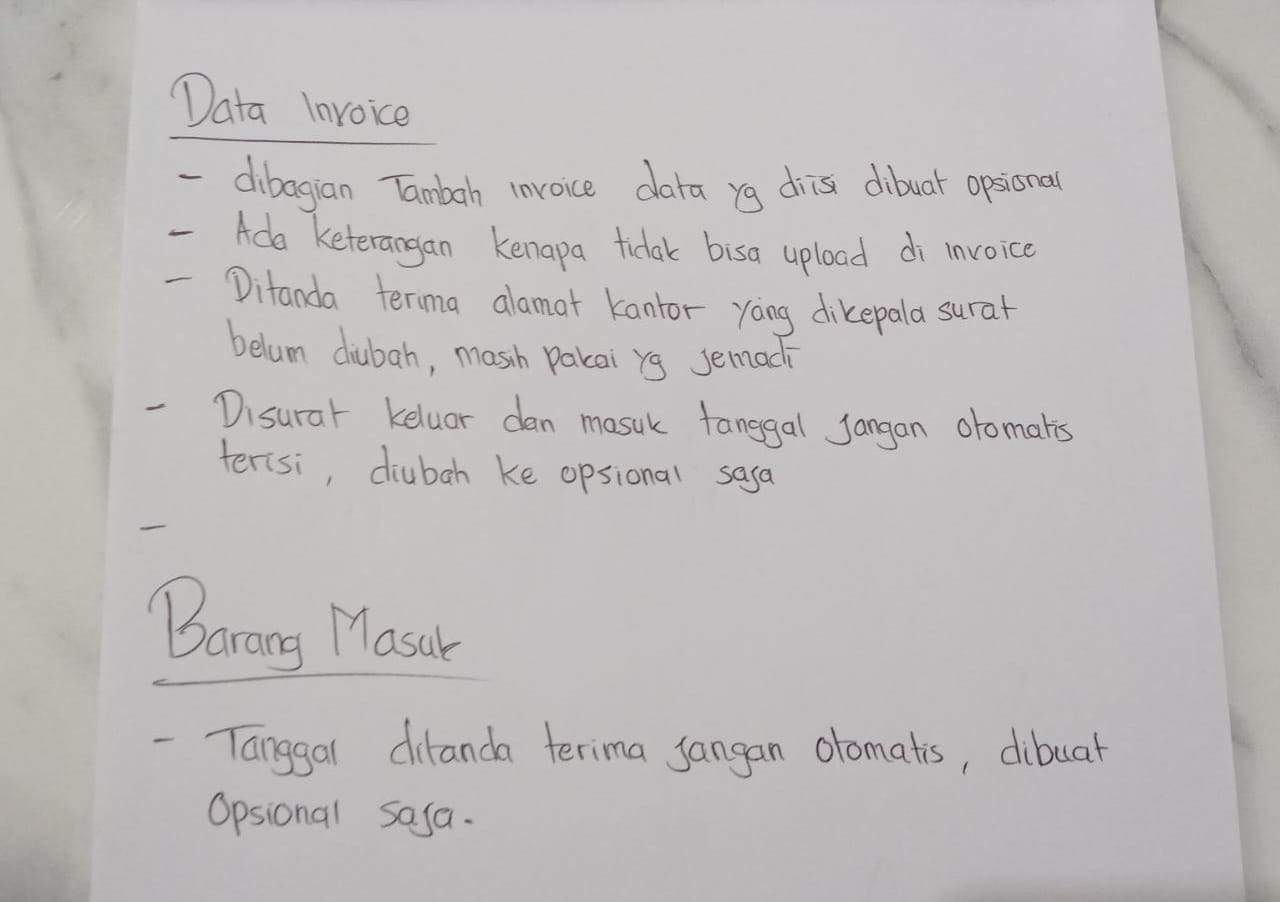 Data Invoice
- dibagian Tambah invoice data yg diisi dibuat opsional
- Ada keterangan kenapa tidak bisa upload di invoice
- Ditanda terima alamat kantor yang dikepala surat
belum diubah, masih pakai yg jemadi
- Disurat keluar dan masuk tanggal jangan otomatis
terisi, diubah ke opsional saja
-
Barang Masuk
- Tanggal ditanda terima jangan otomatis, dibuat
Opsional saja.